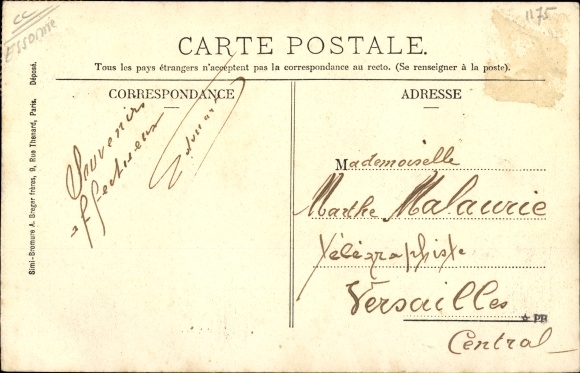 CC
ESSONNE
1175
CARTE POSTALE.
Tous les pays étrangers n'acceptent pas la correspondance au recto. (Se renseigner à la poste).
CORRESPONDANCE
ADRESSE
Simi-Bromure A. Breger frères, 9, Rue Thenard, Paris. Déposé.
Souvenirs
affectueux
Mademoiselle
Marthe Malaurie
Télégraphiste
Versailles
☆ PH
Central